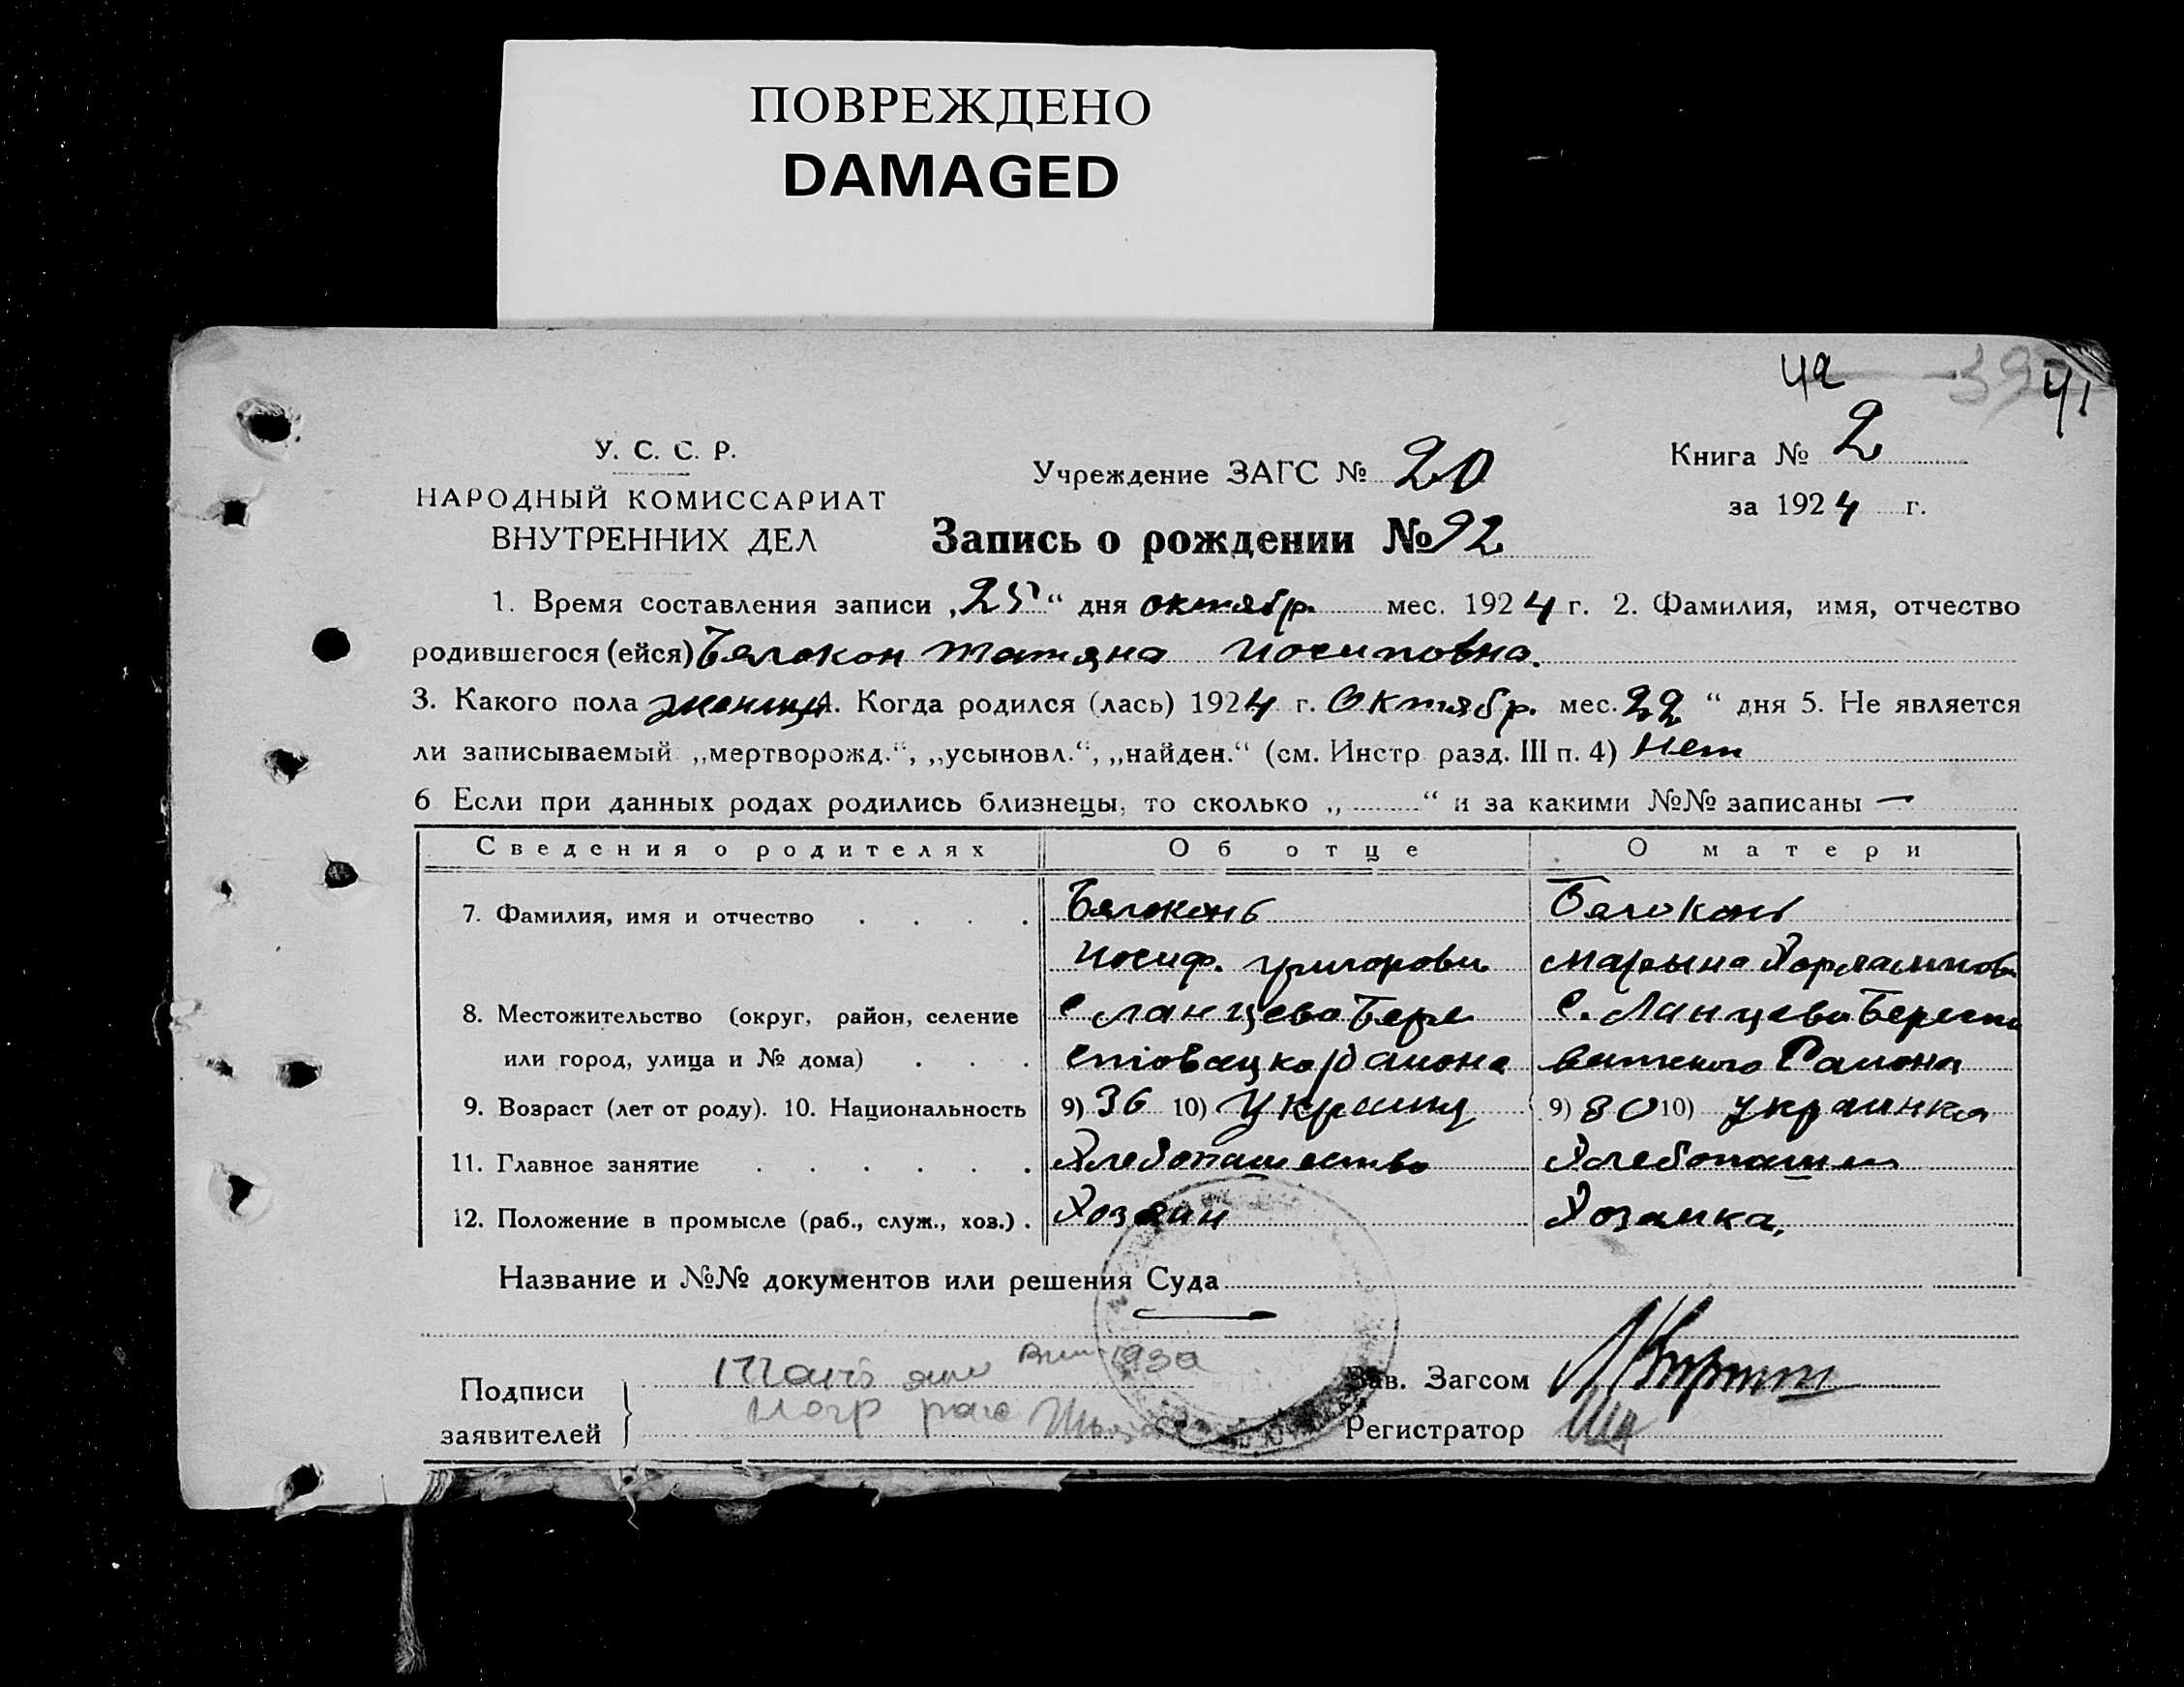 ПОВРЕЖДЕНО
DAMAGED
42 39 41
У. С. С. Р.
НАРОДНЫЙ КОМИССАРИАТ
ВНУТРЕННИХ ДЕЛ
Учреждение ЗАГС № 20
Книга № 2
за 1924 г.
Запись о рождении № 92
1. Время составления записи „25“ дня октябр. мес. 1924 г. 2. Фамилия, имя, отчество
родившегося (ейся) Бялокон Татяна Иосиповна.
3. Какого пола женщ 4. Когда родился (лась) 1924 г. Октябр. мес. 22 “ дня 5. Не является
ли записываемый „мертворожд.“, „усыновл.“, „найден.“ (см. Инстр. разд. III п. 4) Нет
6 Если при данных родах родились близнецы, то сколько „ “ и за какими №№ записаны —
Сведения о родителях Об отце О матери
7. Фамилия, имя и отчество . . . . Бялоконь Бялоконь
Иосиф. Григорови Марына Харлампов
8. Местожительство (округ, район, селение С Ланцево Бере С. Ланцево Берест
или город, улица и № дома) . . . района Района
9. Возраст (лет от роду). 10. Национальность 9) 36 10) Украинц 9) 30 10) Украинка
11. Главное занятие . . . . . . Хлебопашество Хлебопаш
12. Положение в промысле (раб., служ., хоз.) . Хозяин Хозаика,
Название и №№ документов или решения Суда
Подписи
заявителей
Зав. Загсом
Регистратор